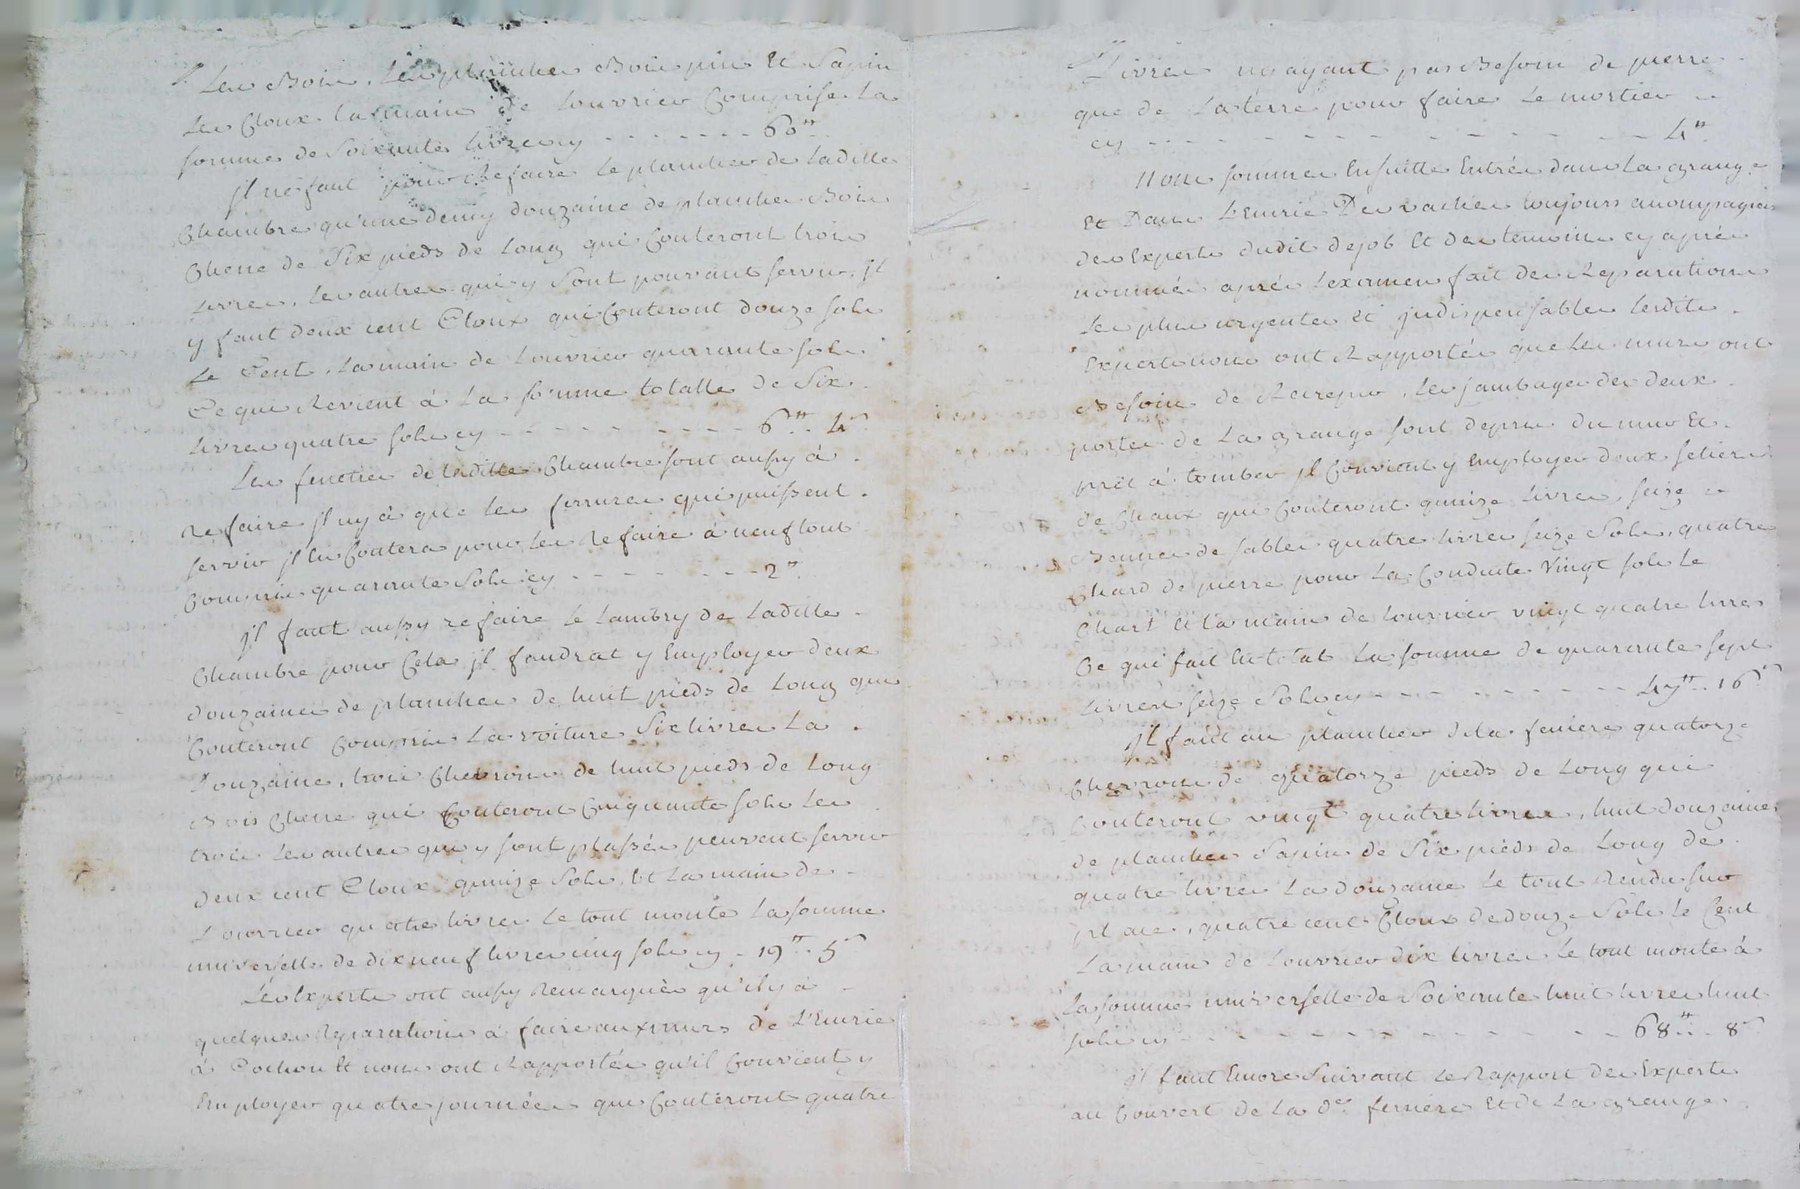 Les Bois, les planches Bois pin et Sapin
les Cloux la main de Louvrier Comprise La
somme de Soixante livres cy - - - - - - - 60 ᵗᵗ
jl ne faut pour Refaire le plancher de Ladille
Chambre qu'une demy douzaine de planches Bois
Chene de Six pieds de Long qui Couteront trois
Livres, les autres qui y Sont pouvant servir, jl
y faut deux cent Cloux qui Couteront douze sols
Le Cent, La main de Louvrier quarante sols.
Ce qui Revient à La somme totalle de Six.
Livres quatre sols cy - - - - - - - - - - 6 ᵗᵗ .. 4 ˢ
Les fenetres de laditte Chambre sont aussy à.
Refaire jl ny à que les ferrures qui puissent.
servir jl en Coutera pour les Refaire à neuf tout
Compris quarante Sols cy - - - - - - - - 2 ᵗᵗ
jl faut aussy refaire le Lambry de Laditte.
Chambre pour Cela jl faudrat y Employer deux
douzaines de planches de huit pieds de Long qui
Couteront Compris La voiture Six livres La.
Douzaine, trois Chevrons de huit pieds de Long
Bois Chene qui Couteront Cinquante sols les
trois les autres qui y sont plassés peuvent servir
deux cent Cloux quinze Sols, Et La main de.
Louvrier quatre livres le tout monte La somme
universelle de dix neuf livres cinq sols cy - 19 ᵗᵗ .. 5 ˢ
Les Experts ont aussy Remarqués qu'il y a
quelques Reparations à faire aux murs de L'Emrie
à Cochon Et nous ont Rapportés qu'il Convient y
Employer quatre journées qui Couteront quatre
Livres n'ayant pas Besoin de pierre
que de La terre pour faire Le mortier
cy - - - - - - - - - - - - - - - 4 ᵗᵗ
Nous sommes Ensuitte Entrés dans La grange
Et Dans L'Emrie Des vaches toujours accompagnés
des Experts dudit dejob Et des temoins cy après
nommés après Lexamen fait des Reparations
les plus urgentes Et jndispensables lesdits.
Experts nous ont Rapportés que les murs ont
Besoin de Recrepir, les jambages des deux.
portes de La grange sont depris du mur Et.
prêt à tomber jl Convient y Employer deux setiers
de Chaux qui Couteront quinze Livres, seize
Bennes de sable quatre livres seize Sols, quatre
Chard de pierre pour La Conduite Vingt sols le
Chart Et la main de Louvrier vingt quatre livres
Ce qui fait En total La somme de quarante sept
Livres seize Sols cy - - - - - - - - - 47 ᵗᵗ .. 16 ˢ
jl faut au plancher de la feniere quatorze
Chevrons de quatorze pieds de Long qui
Couteront vingt quatre livres, huit douzaines
de planches Sapin de Six pieds de Long de.
quatre livres La douzaine le tout Rendu sur
place, quatre cent Cloux de douze Sols le Cent
La main de Louvrier dix livres le tout monte à
La somme universelle de Soixante huit livres huit
sols cy - - - - - - - - - - - 68 ᵗᵗ .. 8 ˢ
jl faut Encore Suivant le Rapport des Experts
au Couvert de La dᵉ feniere Et de La grange.